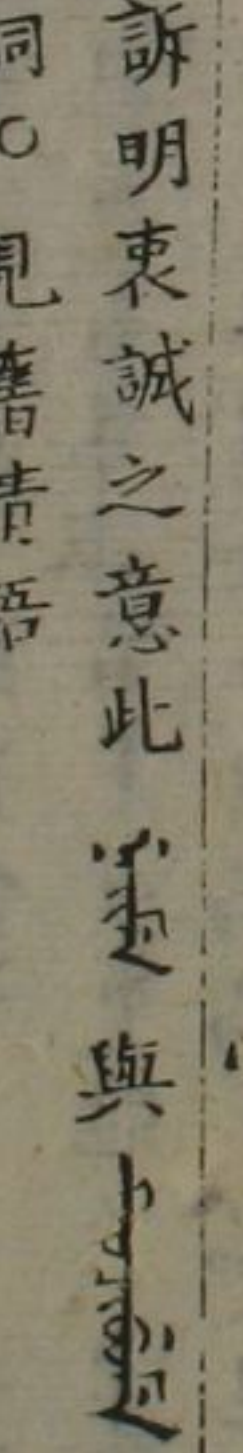 訴明衷誠之意此 與
詞○見舊清語